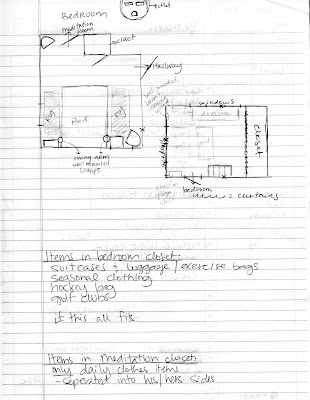 Bedroom
outlet
meditation room
closet
Hallway
rug
Bed
rug
swing arm
wall mounted
lamps
windows
dresser
closet
bedroom
= curtains
Items in bedroom closet:
suitcases & luggage/exercise bags
seasonal clothing
hockey bag
golf clubs
if this all fits.
Items in meditation closet:
only daily clothes items
- seperated into his/hers sides